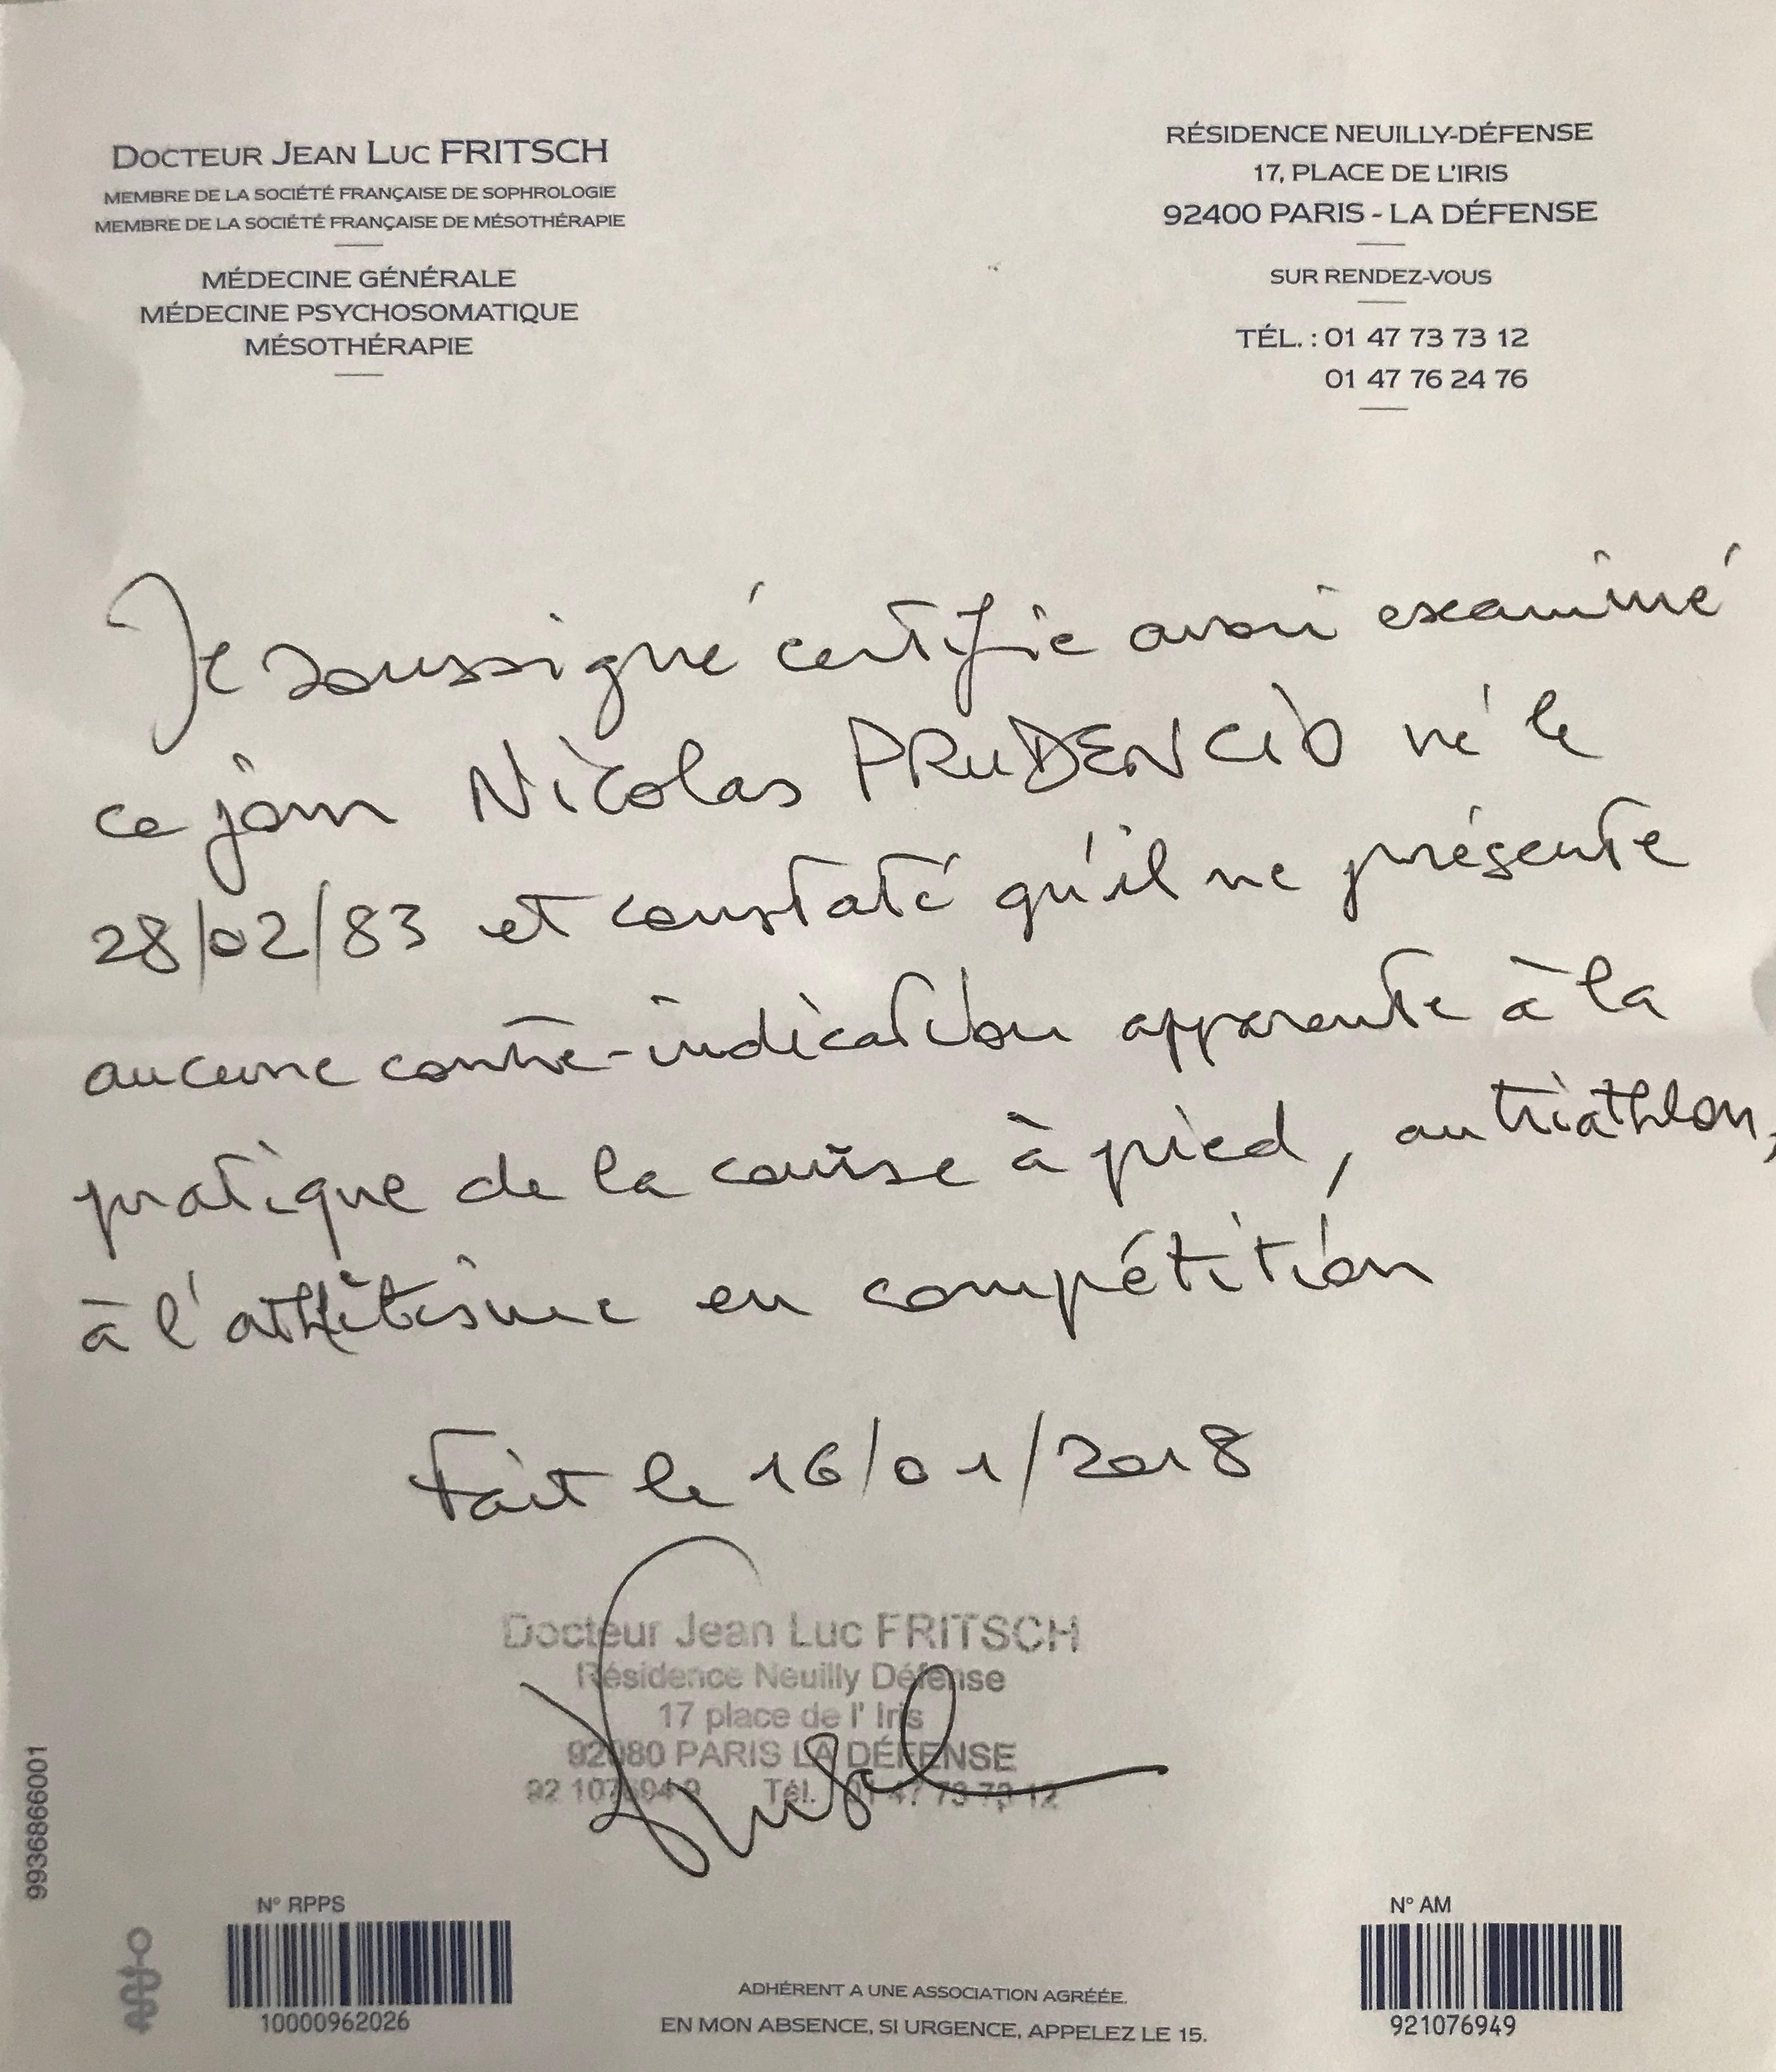 DOCTEUR JEAN LUC FRITSCH
MEMBRE DE LA SOCIÉTÉ FRANÇAISE DE SOPHROLOGIE
MEMBRE DE LA SOCIÉTÉ FRANÇAISE DE MÉSOTHÉRAPIE
MÉDECINE GÉNÉRALE
MÉDECINE PSYCHOSOMATIQUE
MÉSOTHÉRAPIE
RÉSIDENCE NEUILLY-DÉFENSE
17, PLACE DE L'IRIS
92400 PARIS - LA DÉFENSE
SUR RENDEZ-VOUS
TÉL. : 01 47 73 73 12
01 47 76 24 76
Je soussigné certifie avoir examiné
ce jour Nicolas PRUDENCIO né le
28/02/83 et constaté qu'il ne présente
aucune contre-indication apparente à la
pratique de la course à pied, au triathlon,
à l'athlétisme en compétition
Fait le 16/01/2018
Docteur Jean Luc FRITSCH
Résidence Neuilly Défense
17 place de l' Iris
92980 PARIS LA DÉFENSE
92 107694 9 Tél. 01 47 73 73 12
9936866001
N° RPPS
10000962026
ADHÉRENT A UNE ASSOCIATION AGRÉÉE.
EN MON ABSENCE, SI URGENCE, APPELEZ LE 15.
N° AM
921076949